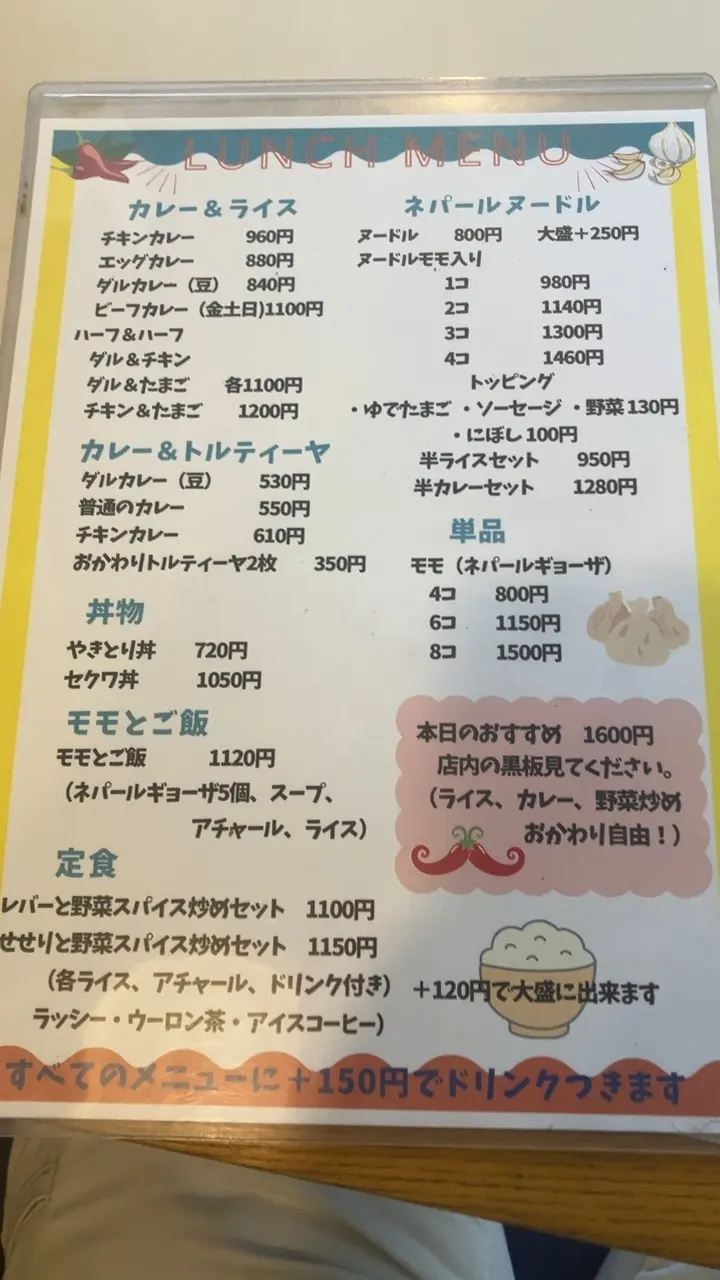 LUNCH MENU
カレー＆ライス
チキンカレー 960円
エッグカレー 880円
ダルカレー（豆） 840円
ビーフカレー（金土日)1100円
ハーフ＆ハーフ
ダル＆チキン
ダル＆たまご 各1100円
チキン＆たまご 1200円
カレー＆トルティーヤ
ダルカレー（豆） 530円
普通のカレー 550円
チキンカレー 610円
おかわりトルティーヤ2枚 350円
丼物
やきとり丼 720円
セクワ丼 1050円
モモとご飯
モモとご飯 1120円
（ネパールギョーザ5個、スープ、
アチャール、ライス）
定食
レバーと野菜スパイス炒めセット 1100円
せせりと野菜スパイス炒めセット 1150円
（各ライス、アチャール、ドリンク付き）
ラッシー・ウーロン茶・アイスコーヒー）
ネパールヌードル
ヌードル 800円 大盛＋250円
ヌードルモモ入り
1コ 980円
2コ 1140円
3コ 1300円
4コ 1460円
トッピング
・ゆでたまご ・ソーセージ ・野菜 130円
・にぼし 100円
半ライスセット 950円
半カレーセット 1280円
単品
モモ（ネパールギョーザ）
4コ 800円
6コ 1150円
8コ 1500円
本日のおすすめ 1600円
店内の黒板見てください。
（ライス、カレー、野菜炒め
おかわり自由！）
＋120円で大盛に出来ます
すべてのメニューに＋150円でドリンクつきます